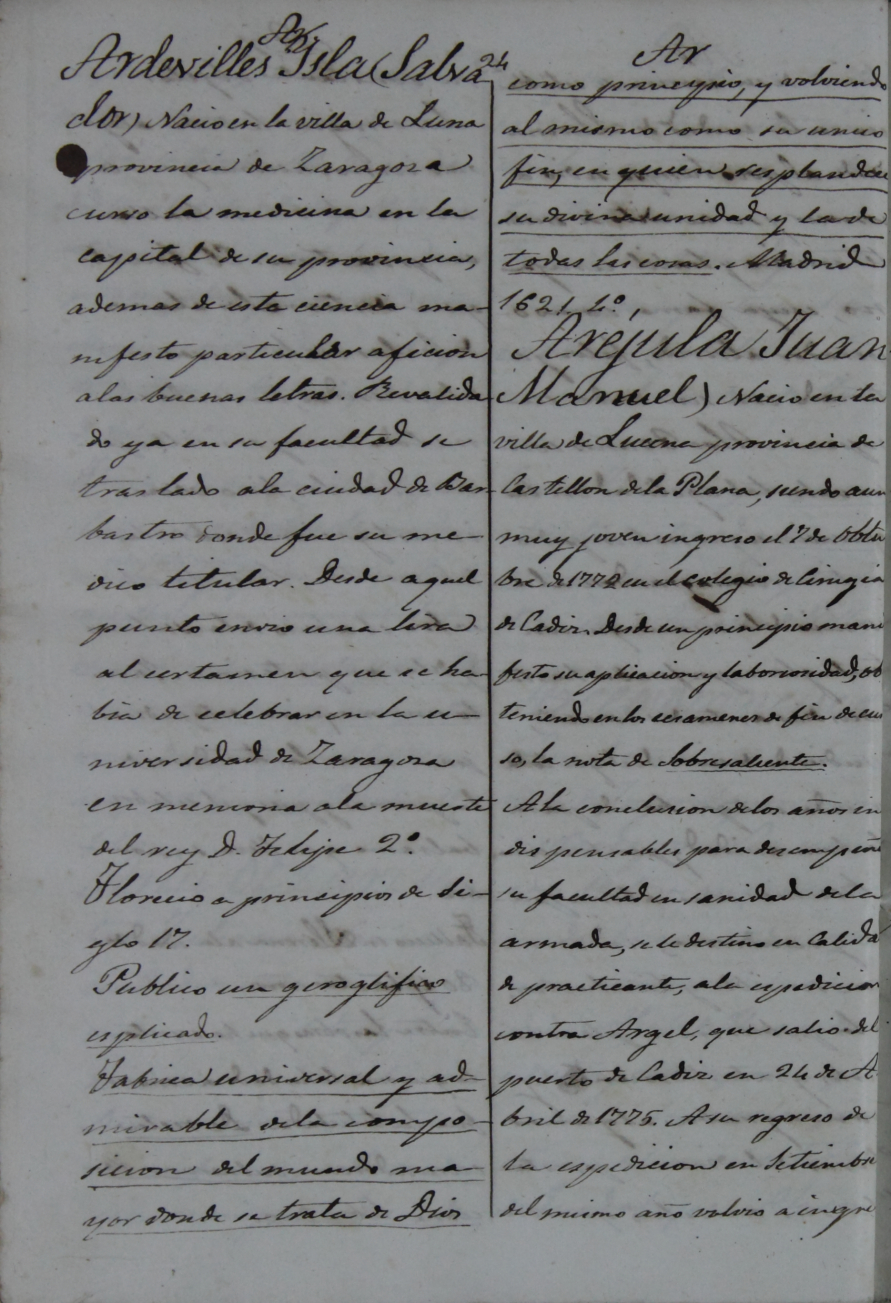 Ar
Ardevilles Isla (Salva
24
dor) Nacio en la villa de Luna
provincia de Zaragoza
curso la medicina en la
capital de su provincia,
ademas de esta ciencia ma-
nifesto particular aficion
a las buenas letras. Revalida
do ya en su facultad se
traslado a la ciudad de Bar-
bastro donde fue su me-
dico titular. Desde aquel
punto envio una lira
al certamen que se ha-
bia de celebrar en la u-
niversidad de Zaragoza
en memoria a la muerte
del rey D. Felipe 2º.
Florecio a principios de si-
glo 17.
Publico un geroglifico
esplicado.
Fabrica universal y ad-
mirable de la compo-
sicion del mundo ma-
yor donde se trata de Dios
Ar
como principio, y volviendo
al mismo como su unico
fin, en quien resplandece
su divina unidad y la de
todas las cosas. Madrid
1621. 4º,
Aréjula Juan
Manuel) Nacio en la
villa de Lucena provincia de
Castellon de la Plana, siendo aun
muy joven ingreso el 7 de Octu
bre de 1772 en el colegio de Cirugia
de Cadiz. Desde un principio mani
festo su aplicacion y laboriosidad, ob
teniendo en los ecsamenes de fin de cur
so, la nota de Sobresaliente.
A la conclusion de los años in
dispensables para desempeñar
su facultad en sanidad de la
armada, se le destino en calidad
de practicante, a la espedicion
contra Argel, que salio del
puerto de Cadiz en 24 de A
bril de 1775. A su regreso de
la espedicion en Setiembre
del mismo año volvio a ingre